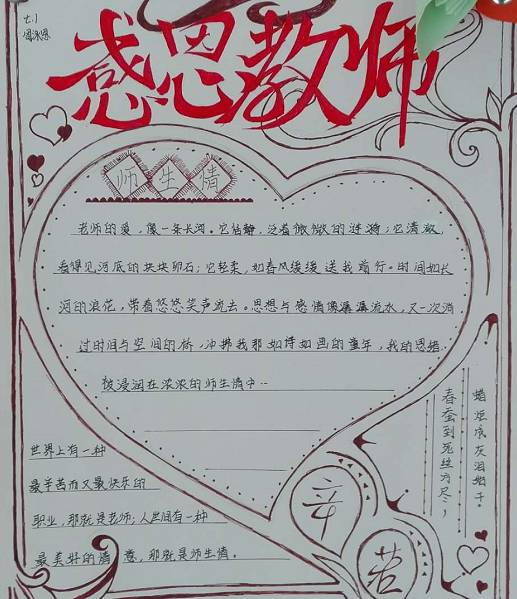 七.1
感恩教师
师生情
老师的爱，像一条长河。它恬静，泛着微微的涟漪；它清澈，
看得见河底的块块卵石；它轻柔，如春风缓缓送我前行。时间如长
河的浪花，带着悠悠笑声流去。思想与感情像潺潺流水，又一次淌
过时间与空间的桥，冲拂我那如诗如画的童年，我的思绪
被浸润在浓浓的师生情中…
春蚕到死丝方尽，
蜡炬成灰泪始干。
世界上有一种
最辛苦而又最快乐的
职业，那就是老师；人世间有一种
最美好的情意，那就是师生情。
辛
苦